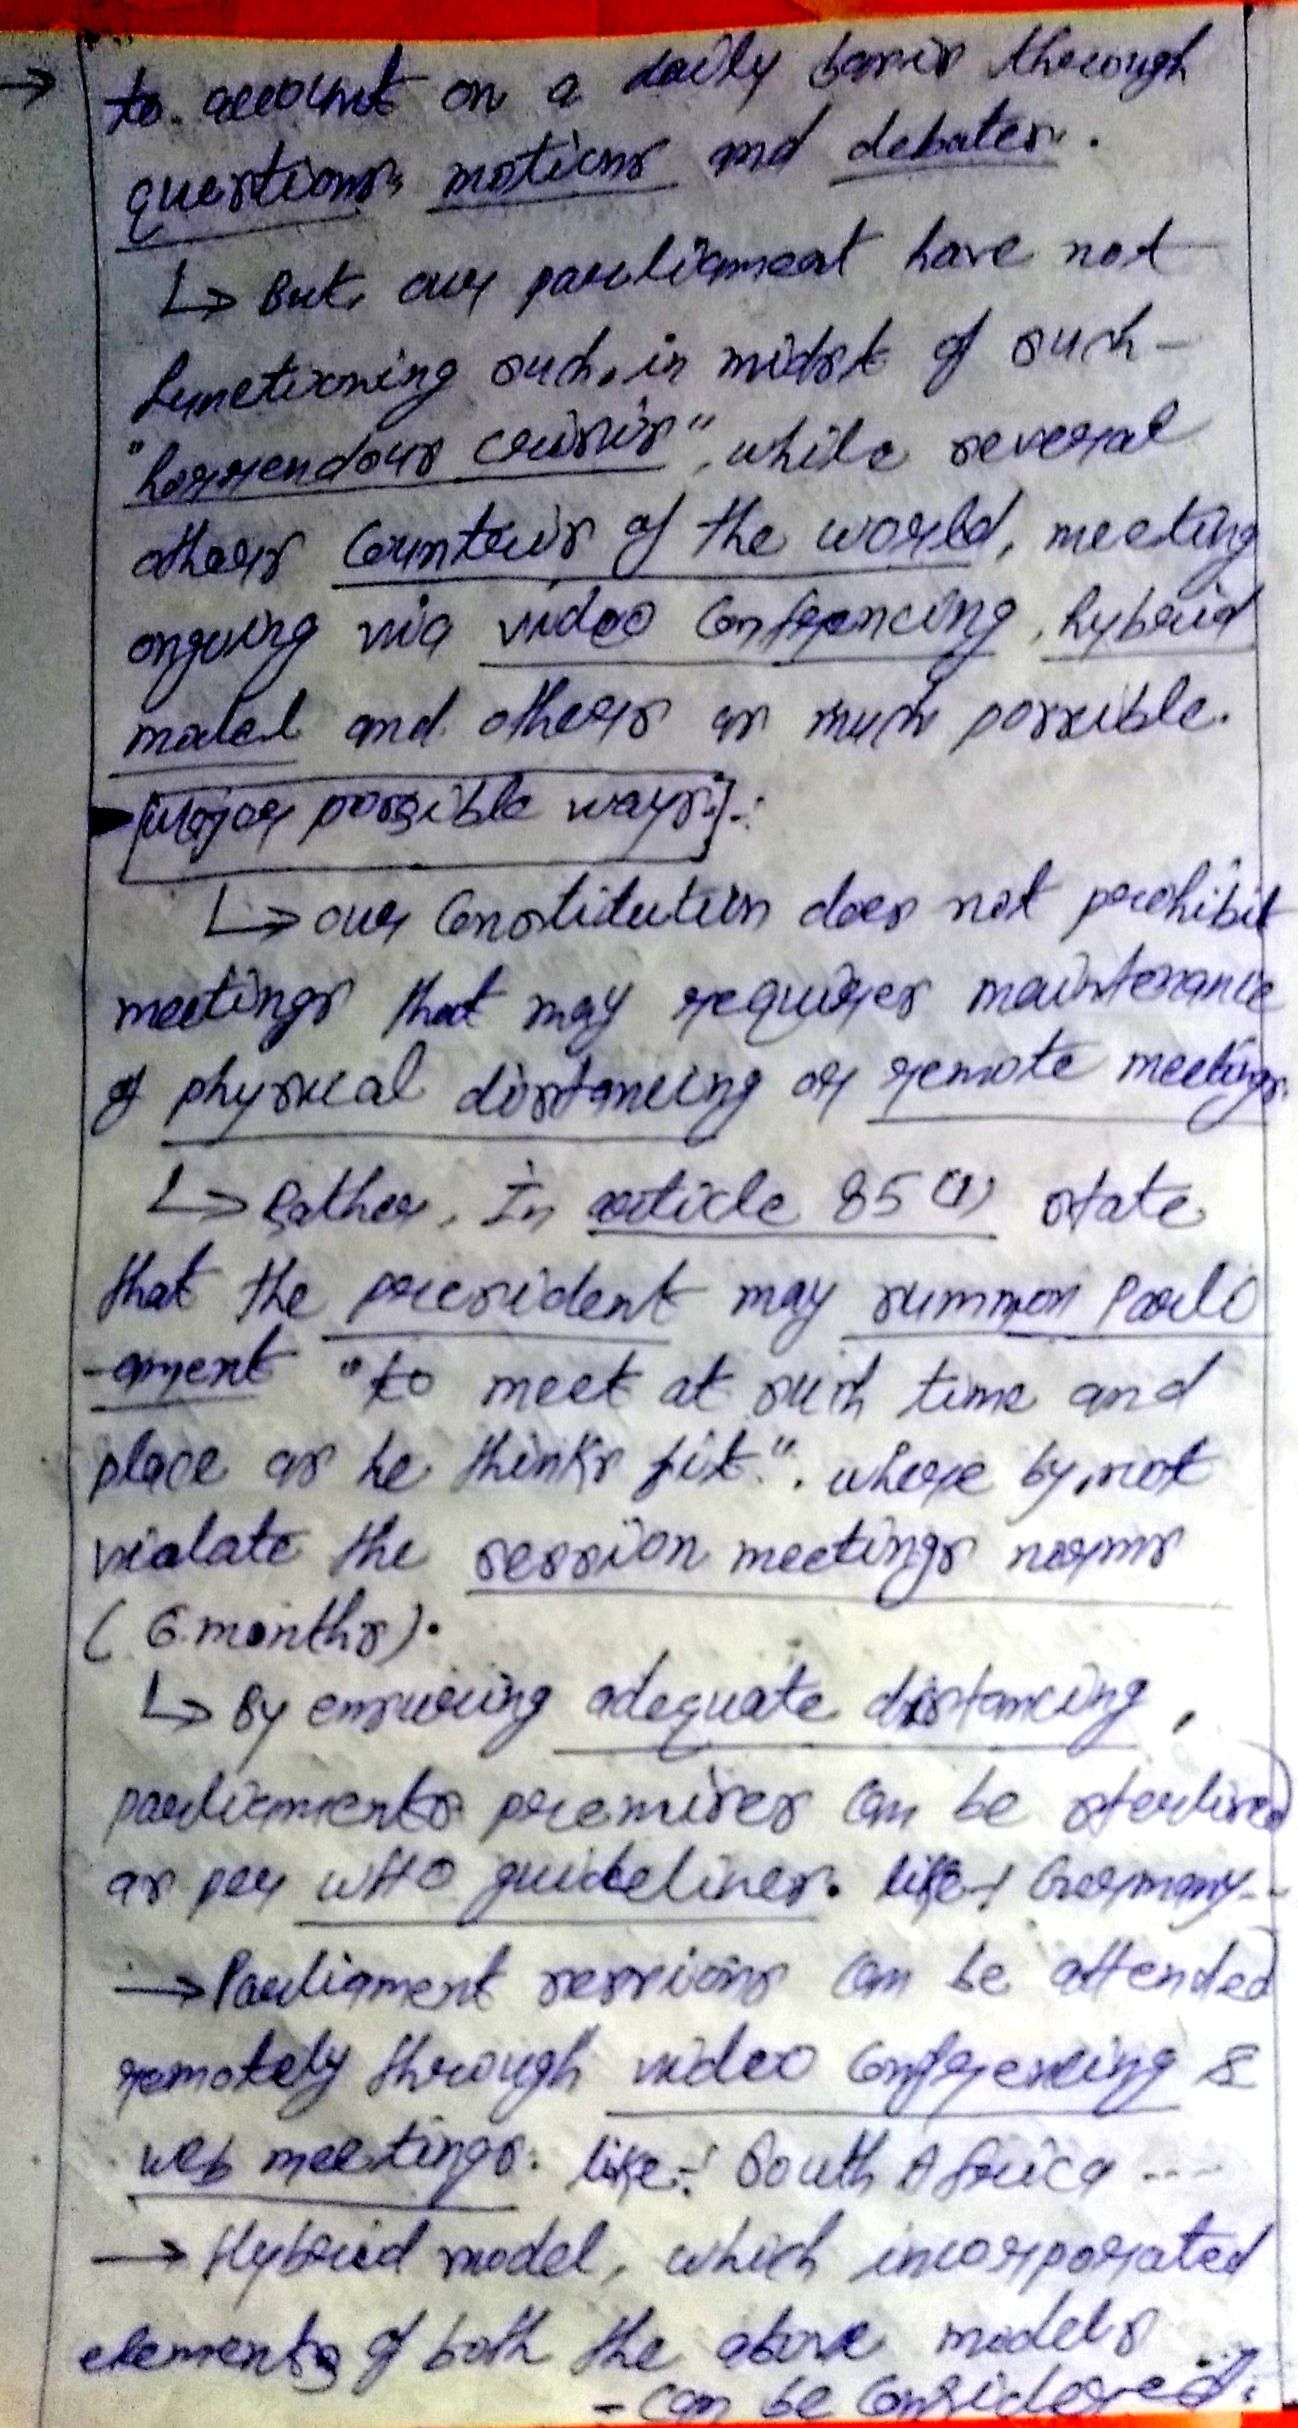 → to account on a daily basis through
questions, motions and debates.
↳ But, our parliament have not
functioning such, in midst of such -
"horrendous crisis", while several
others Countries of the world, meeting
ongoing via video Conferencing, hybrid
model and others as much possible.
[Major possible ways]:
↳ our Constitution does not prohibit
meetings that may requires maintenance
of physical distancing or remote meetings.
↳ Rather, In article 85(1) state
that the president may summon Parli
-ament "to meet at such time and
place as he thinks fit". where by, not
violate the session meetings norms
(6 months).
↳ By ensuring adequate distancing,
parliaments premises can be sterlised
as per WHO guidelines. like:- Germany...
→ Parliament sessions can be attended
remotely through video Conferencing &
web meetings. like:- South Africa ....
→ Hybrid model, which incorporated
elements of both the above models
- can be Considered.